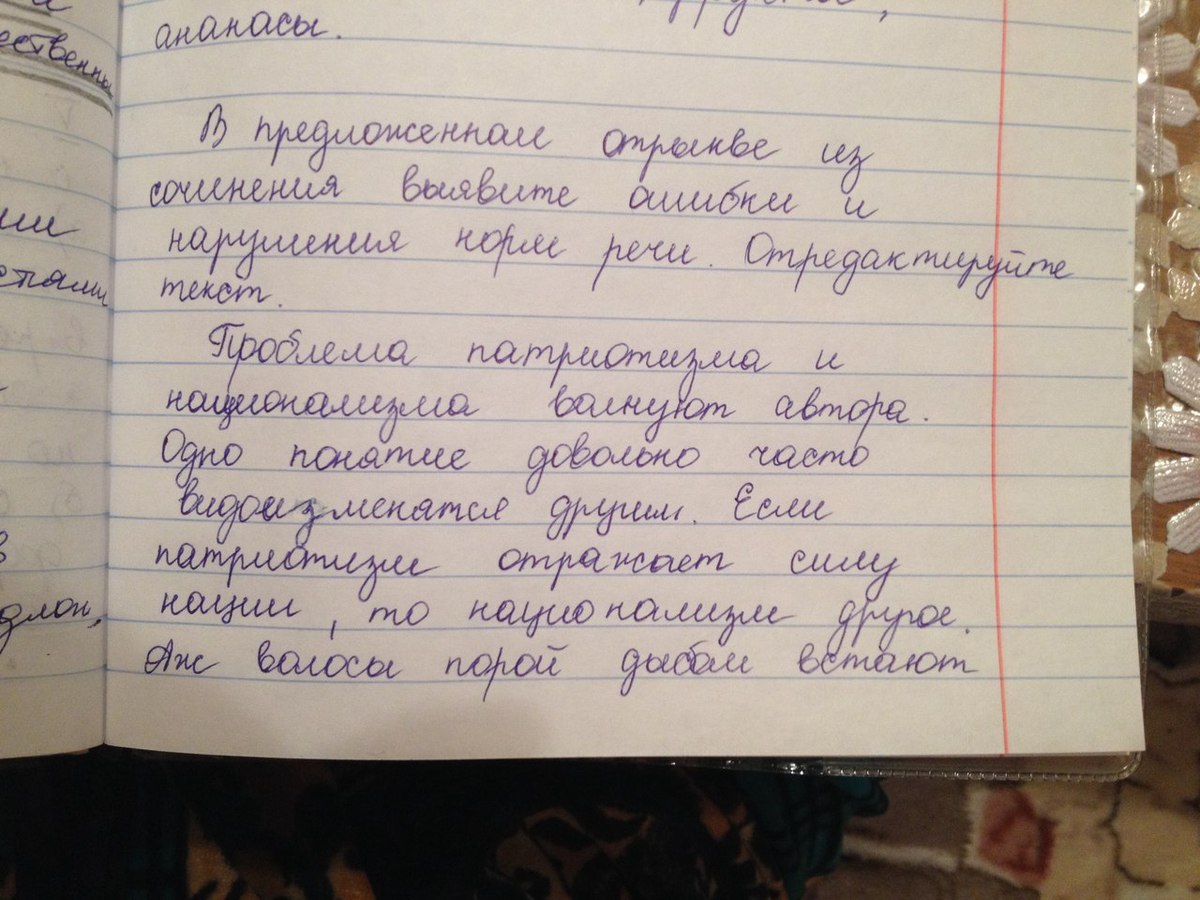 ананасы.
ественны
В предложенном отрывке из
сочинения выявите ошибки и
нарушения норм речи. Отредактируйте
текст.
Проблема патриотизма и
национализма волнуют автора.
Одно понятие довольно часто
видоизменятся другим. Если
патриотизм отражает силу
нации, то национализм другое.
Аж волосы порой дыбом встают